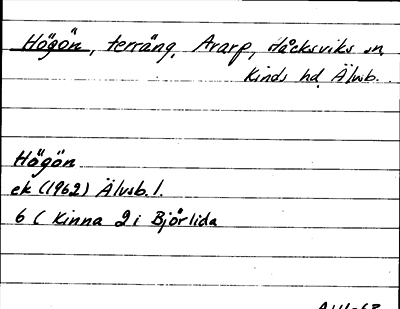 Högön, terräng, Ararp, Håcksviks sn,
Kinds hd, Älvsb.
Högön
ek (1962) Älvsb. l.
6 ( Kinna 2 i Björlida